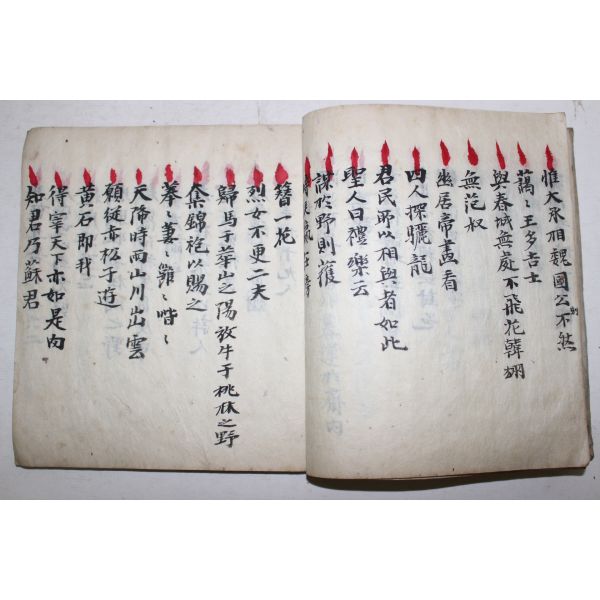 惟大丞相魏國公則不然
藹〻王多吉士
與春城無處不飛花韓翃
無范叔
幽居帝畫看
四人探驪龍
君民所以相與者如此
聖人曰禮樂云
謀於野則獲
簪一花
烈女不更二夫
歸馬于華山之陽放牛于桃林之野
奪錦袍以賜之
菶〻萋〻雝〻喈〻
天降時雨山川出雲
願從赤松子遊
黃石即我
得宰天下亦如是肉
知君乃蘇君